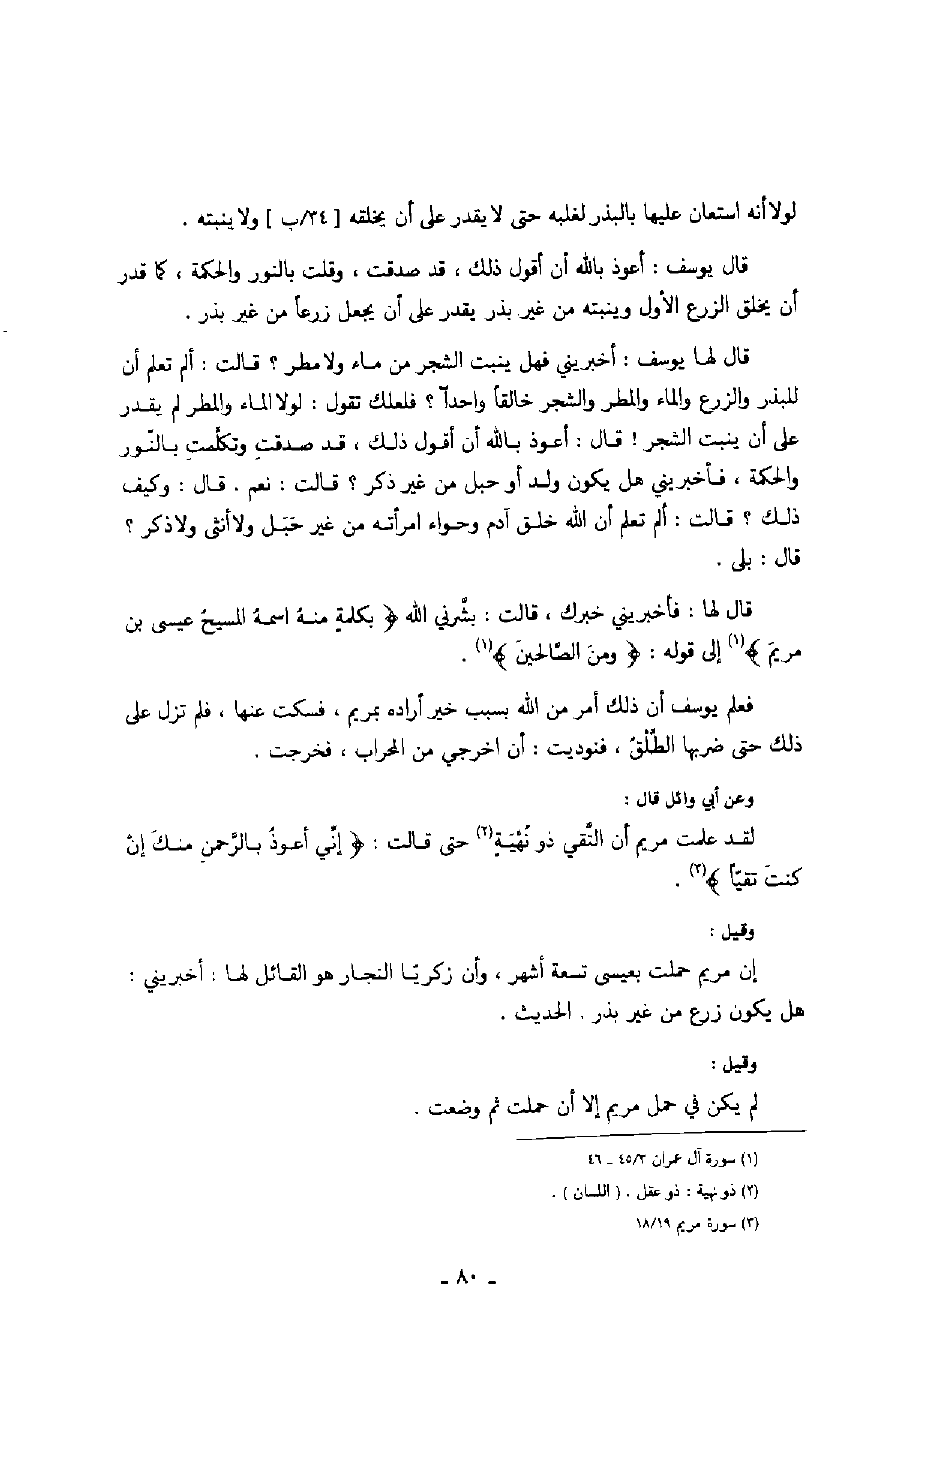 لولا أنه استعان عليها بالبذر لغلبه حتى لا يقدر على أن يخلقه [ ٣٤/ب ] ولا ينبته .
قال يوسف : أعوذ بالله أن أقول ذلك ، قد صدقت ، وقلت بالنور والحكمة ، كما قدر
أن يخلق الزرع الأول وينبته من غير بذر يقدر على أن يجعل زرعاً من غير بذر .
قال لها يوسف : أخبريني فهل ينبت الشجر من ماء ولا مطر ؟ قالت : ألم تعلم أن
للبذر والزرع والماء والمطر والشجر خالقاً واحداً ؟ فلعلك تقول : لولا الماء والمطر لم يقدر
على أن ينبت الشجر ! قال : أعوذ بالله أن أقول ذلك ، قد صدقتِ وتكلّمتِ بالنّور
والحكمة ، فأخبريني هل يكون ولد أو حبل من غير ذكر ؟ قالت : نعم . قال : وكيف
ذلك ؟ قالت : ألم تعلم أن الله خلق آدم وحواء امرأته من غير حَبَل ولا أنثى ولا ذكر ؟
قال : بلى .
قال لها : فأخبريني خبرك ، قالت : بشَّرني الله ﴿ بكلمةٍ منهُ اسمهُ المسيحُ عيسى بن
مريمَ ﴾(١) إلى قوله : ﴿ ومنَ الصَّالحينَ ﴾(١) .
فعلم يوسف أن ذلك أمر من الله بسبب خير أراده بمريم ، فسكت عنها ، فلم تزل على
ذلك حتى ضربها الطَّلْقُ ، فنوديت : أن اخرجي من المحراب ، فخرجت .
وعن أبي وائل قال :
لقد علمت مريم أن التَّقي ذو نُهْيَةٍ(٢) حتى قالت : ﴿ إنِّي أعوذُ بالرَّحمنِ منكَ إنْ
كنتَ تقيّاً ﴾(٣) .
وقيل :
إن مريم حملت بعيسى تسعة أشهر ، وأن زكريّا النجار هو القائل لها : أخبريني :
هل يكون زرع من غير بذر . الحديث .
وقيل :
لم يكن في حمل مريم إلا أن حملت ثم وضعت .
(١) سورة آل عمران ٤٥/٣ ـ ٤٦
(٢) ذو نهية : ذو عقل . ( اللسان ) .
(٣) سورة مريم ١٨/١٩
ـ ٨٠ ـ